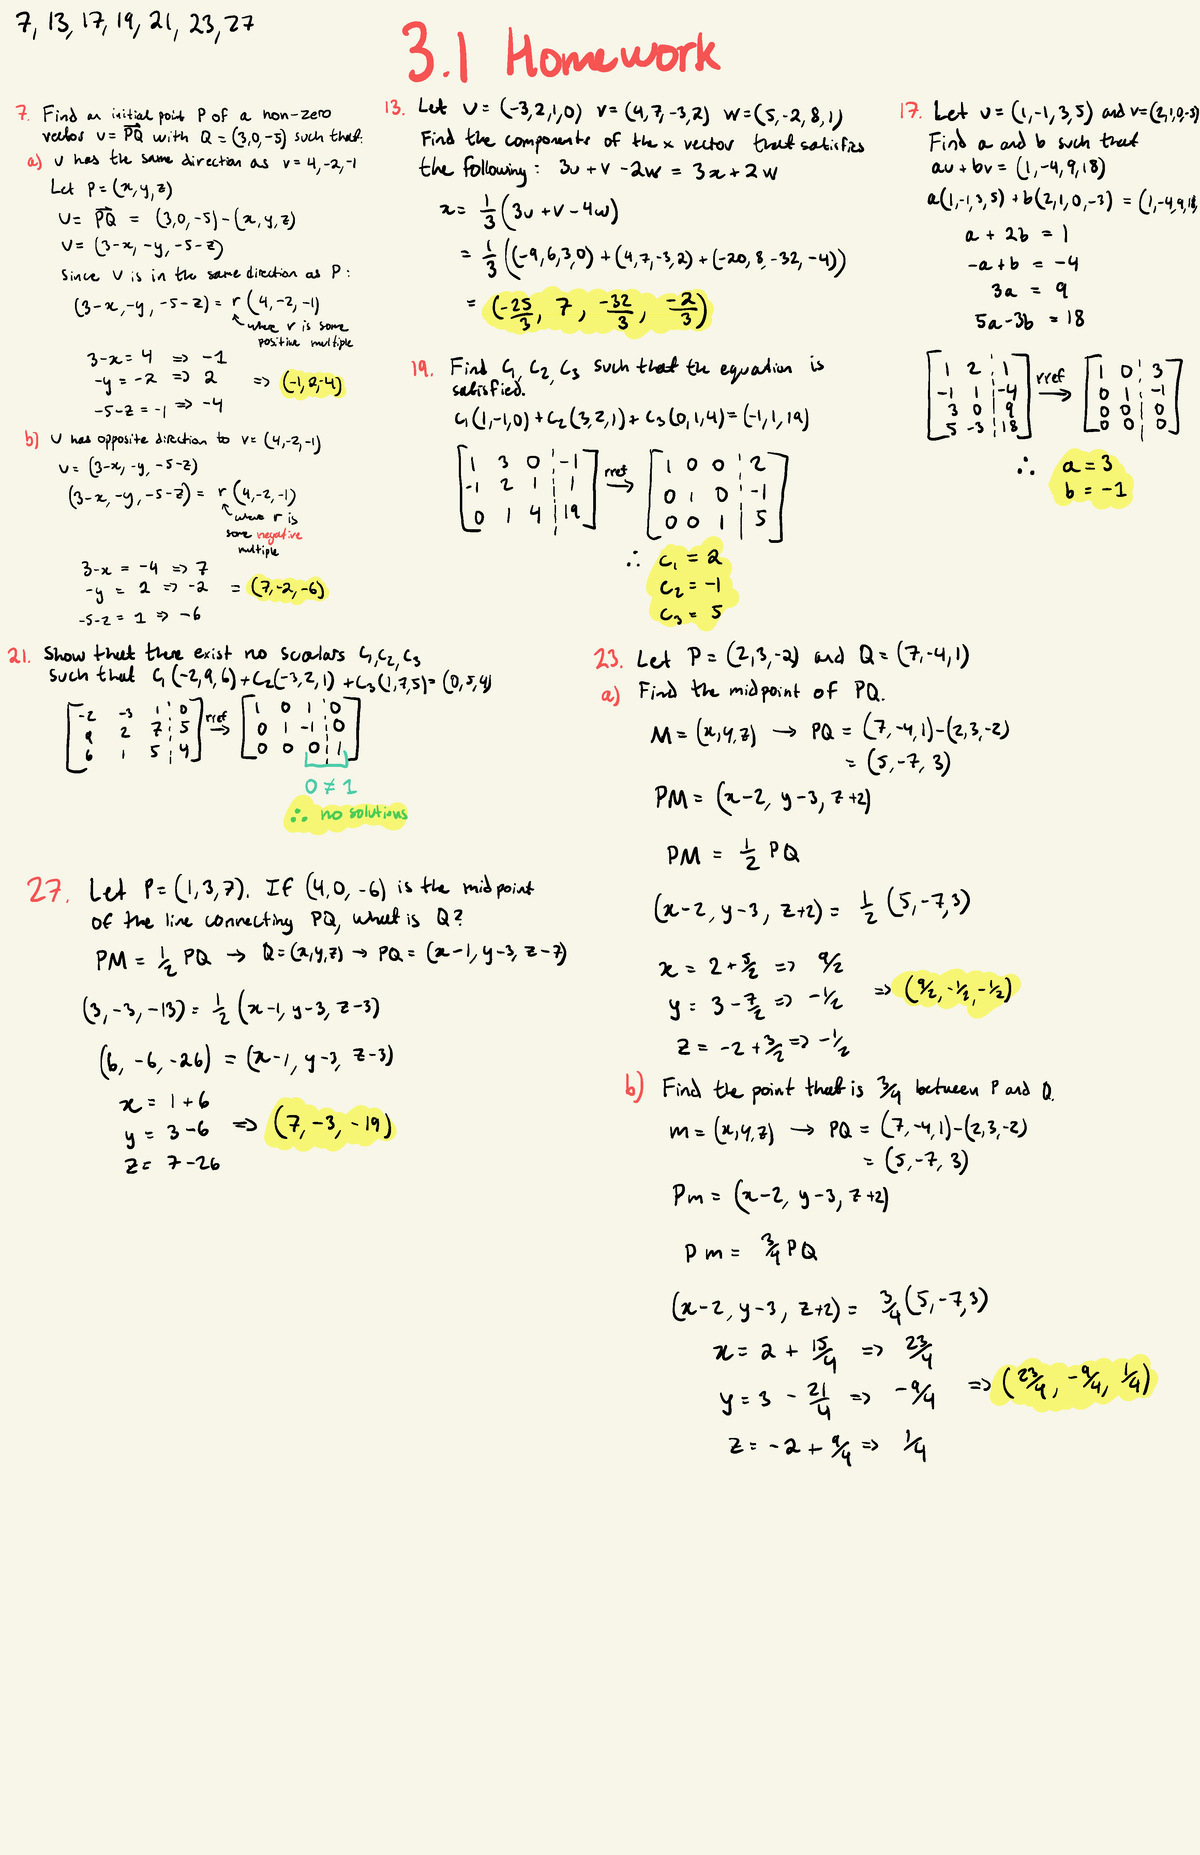 7, 13, 17, 19, 21, 23, 27
3.1 Homework
7. Find an initial point P of a non-zero
vector u = PQ with Q = (3,0,-5) such that:
a) u has the same direction as v = 4,-2,-1
Let P = (x,y,z)
u = PQ = (3,0,-5)-(x,y,z)
v = (3-x, -y, -5-z)
Since u is in the same direction as P:
(3-x, -y, -5-z) = r (4,-2,-1)
where r is some
positive multiple
3-x = 4 => -1
-y = -2 => 2 => (-1,2,-4)
-5-z = -1 => -4
b) u has opposite direction to v = (4,-2,-1)
u = (3-x, -y, -5-z)
(3-x, -y, -5-z) = r (4,-2,-1)
where r is
some negative
multiple
3-x = -4 => 7
-y = 2 => -2 = (7,-2,-6)
-5-z = 1 => -6
13. Let u = (-3,2,1,0) v = (4,7,-3,2) w = (5,-2,8,1)
Find the components of the x vector that satisfies
the following: 3u + v - 2w = 3x + 2w
x = 1/3 (3u + v - 4w)
= 1/3 ((-9,6,3,0) + (4,7,-3,2) + (-20,8,-32,-4))
= (-25/3, 7, -32/3, -2/3)
17. Let u = (1,-1,3,5) and v = (2,1,0,-3)
Find a and b such that
au + bv = (1,-4,9,18)
a(1,-1,3,5) + b(2,1,0,-3) = (1,-4,9,18
a + 2b = 1
-a + b = -4
3a = 9
5a - 3b = 18
[1 2 | 1] rref → [1 0 | 3]
[-1 1 | -4] [0 1 | -1]
[3 0 | 9] [0 0 | 0]
[5 -3 | 18] [0 0 | 0]
∴ a = 3
b = -1
19. Find C₁, C₂, C₃ such that the equation is
satisfied.
C₁(1,-1,0) + C₂(3,2,1) + C₃(0,1,4) = (-1,1,19)
[1 3 0 | -1] rref → [1 0 0 | 2]
[-1 2 1 | 1] [0 1 0 | -1]
[0 1 4 | 19] [0 0 1 | 5]
∴ C₁ = 2
C₂ = -1
C₃ = 5
21. Show that there exist no scalars C₁,C₂,C₃
such that C₁(-2,9,6) + C₂(-3,2,1) + C₃(1,7,5) = (0,5,4)
[-2 -3 1 | 0] rref → [1 0 1 | 0]
[9 2 7 | 5] [0 1 -1 | 0]
[6 1 5 | 4] [0 0 0 | 1]
0 ≠ 1
∴ no solutions
23. Let P = (2,3,-2) and Q = (7,-4,1)
a) Find the midpoint of PQ.
M = (x,y,z) → PQ = (7,-4,1)-(2,3,-2)
= (5,-7,3)
PM = (x-2, y-3, z+2)
PM = 1/2 PQ
(x-2, y-3, z+2) = 1/2 (5,-7,3)
x = 2 + 5/2 => 9/2
y = 3 - 7/2 => -1/2 => (9/2, -1/2, -1/2)
z = -2 + 3/2 => -1/2
b) Find the point that is 3/4 between P and Q.
m = (x,y,z) → PQ = (7,-4,1)-(2,3,-2)
= (5,-7,3)
Pm = (x-2, y-3, z+2)
Pm = 3/4 PQ
(x-2, y-3, z+2) = 3/4 (5,-7,3)
x = 2 + 15/4 => 23/4
y = 3 - 21/4 => -9/4 => (23/4, -9/4, 1/4)
z = -2 + 9/4 => 1/4
27. Let P = (1,3,7). If (4,0,-6) is the midpoint
of the line connecting PQ, what is Q?
PM = 1/2 PQ → Q = (x,y,z) → PQ = (x-1, y-3, z-7)
(3,-3,-13) = 1/2 (x-1, y-3, z-3)
(6,-6,-26) = (x-1, y-3, z-3)
x = 1+6
y = 3-6 => (7,-3,-19)
z = 7-26